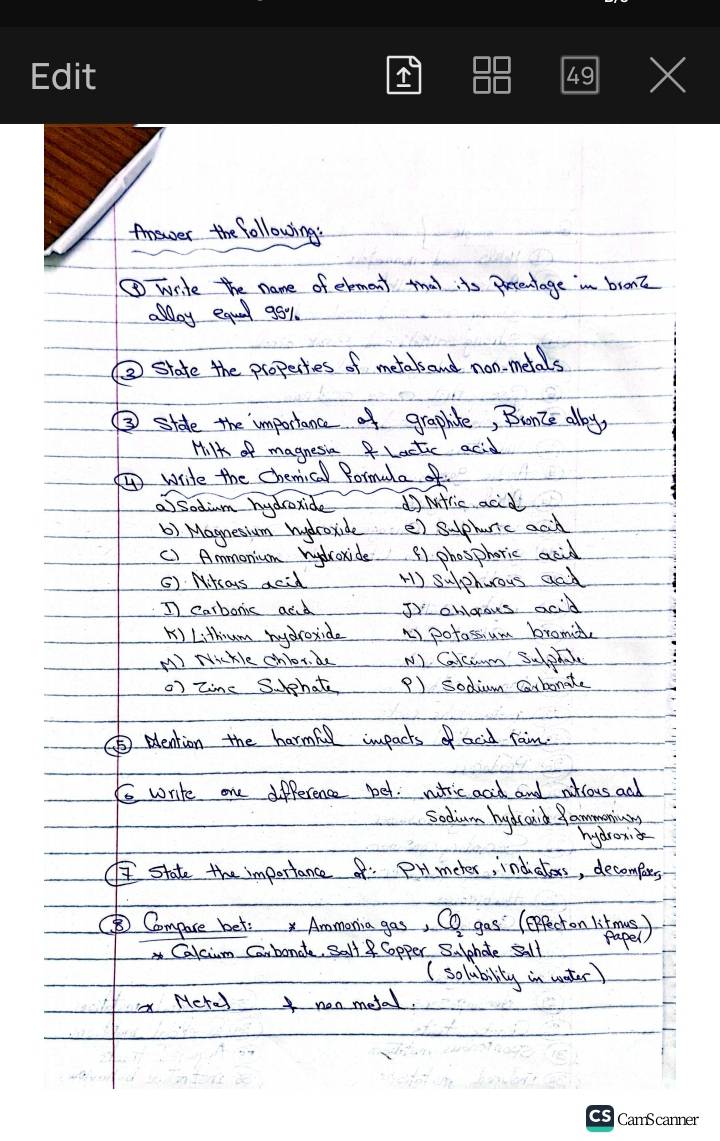 Edit
49
Answer the following:
① Write the name of element that its percentage in bronze
alloy equal 95%.
② State the properties of metals and non-metals
③ State the importance of graphite, Bronze alloy,
Milk of magnesia & Lactic acid
④ Write the Chemical formula of:
a) Sodium hydroxide d) Nitric acid
b) Magnesium hydroxide e) Sulphuric acid
c) Ammonium hydroxide f) phosphoric acid
G) Nitrous acid H) Sulphurous acid
I) Carbonic acid J) chlorous acid
K) Lithium hydroxide L) potassium bromide
M) Nickle chloride N) Calcium Sulphate
O) Zinc Sulphate P) Sodium Carbonate
⑤ Mention the harmful impacts of acid rain.
⑥ Write one difference bet. nitric acid and nitrous acid
Sodium hydroxid & ammonium
hydroxide
⑦ State the importance of: PH meter, indicators, decomposers
⑧ Compare bet: * Ammonia gas, CO₂ gas (Effect on litmus
paper)
* Calcium Carbonate Salt & Copper Sulphate Salt
(Solubility in water)
* Metal & non metal.
CS CamScanner